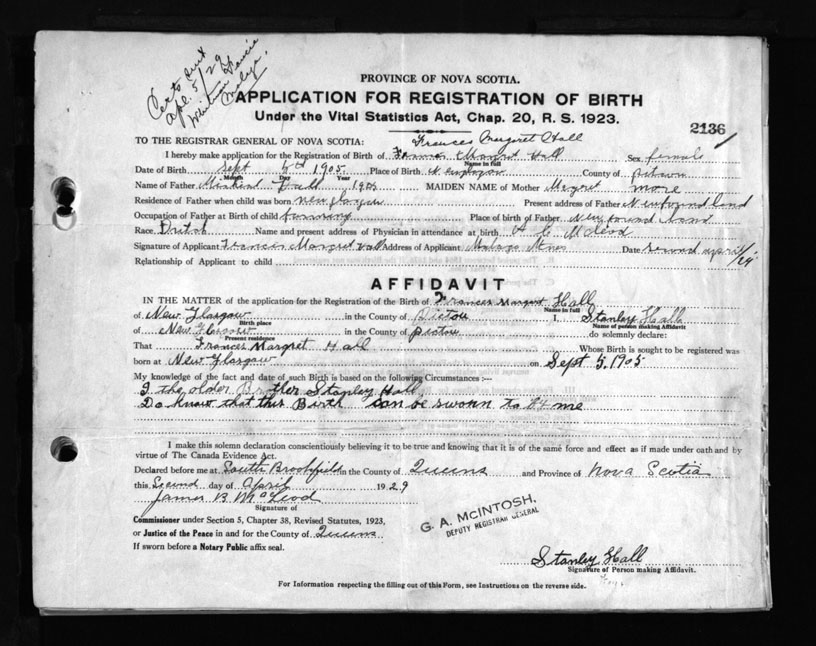 Certs sent
Apl. 5/29
PROVINCE OF NOVA SCOTIA.
APPLICATION FOR REGISTRATION OF BIRTH
Under the Vital Statistics Act, Chap. 20, R. S. 1923.
2136
TO THE REGISTRAR GENERAL OF NOVA SCOTIA: Frances Margaret Hall
I hereby make application for the Registration of Birth of Margret Hall Sex female
Name in full
Date of Birth Sept 5th 1905 Place of Birth County of
Month Day Year
Name of Father Hall MAIDEN NAME of Mother Margret more
Residence of Father when child was born new glasgow Present address of Father Newfoundland
Occupation of Father at Birth of child farming Place of birth of Father Newfound land
Race Dutch Name and present address of Physician in attendance at birth A C McLeod
Signature of Applicant Frances Margret Hall Address of Applicant Molega Mines Date second april/29
Relationship of Applicant to child
AFFIDAVIT
IN THE MATTER of the application for the Registration of the Birth of Frances Margret Hall
Name in full
of New Glasgow in the County of Pictou I, Stanley Hall
Birth place Name of person making Affidavit
of New Glasgow in the County of Pictou do solemnly declare:
Present residence
That Frances Margret Hall Whose Birth is sought to be registered was
born at New Glasgow on Sept 5, 1905
My knowledge of the fact and date of such Birth is based on the following Circumstances :—
I the older Brother Stanley Hall
Do know that this Birth can be sworn to by me
I make this solemn declaration conscientiously believing it to be true and knowing that it is of the same force and effect as if made under oath and by
virtue of The Canada Evidence Act.
Declared before me at South Brookfield in the County of Queens and Province of Nova Scotia
this Second day of April 1929
James B McLeod
Signature of
Commissioner under Section 5, Chapter 38, Revised Statutes, 1923,
or Justice of the Peace in and for the County of Queens
If sworn before a Notary Public affix seal.
G. A. MCINTOSH,
DEPUTY REGISTRAR GENERAL
Stanley Hall
Signature of Person making Affidavit.
For Information respecting the filling out of this Form, see Instructions on the reverse side.